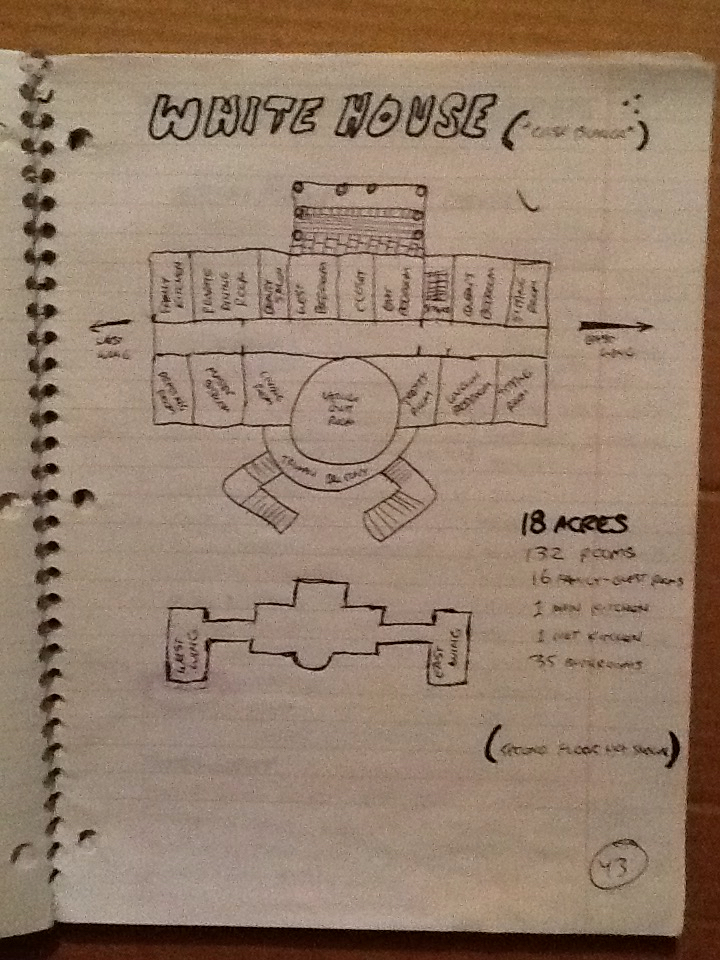 WHITE HOUSE
FAMILY
KITCHEN
PRIVATE
DINING
ROOM
BEAUTY
SALON
WEST
BEDROOM
CLOSET
EAST
BEDROOM
QUEEN'S
BEDROOM
SITTING
ROOM
WEST
WING
EAST
WING
DRESSING
ROOM
MASTER
BEDROOM
LIVING
ROOM
YELLOW
OVAL
ROOM
TREATY
ROOM
LINCOLN
BEDROOM
SITTING
ROOM
TRUMAN BALCONY
18 ACRES
132 ROOMS
16 FAMILY-GUEST ROOMS
1 MAIN KITCHEN
1 DIET KITCHEN
35 BATHROOMS
WEST
WING
EAST
WING
(SECOND FLOOR NOT SHOWN)
43